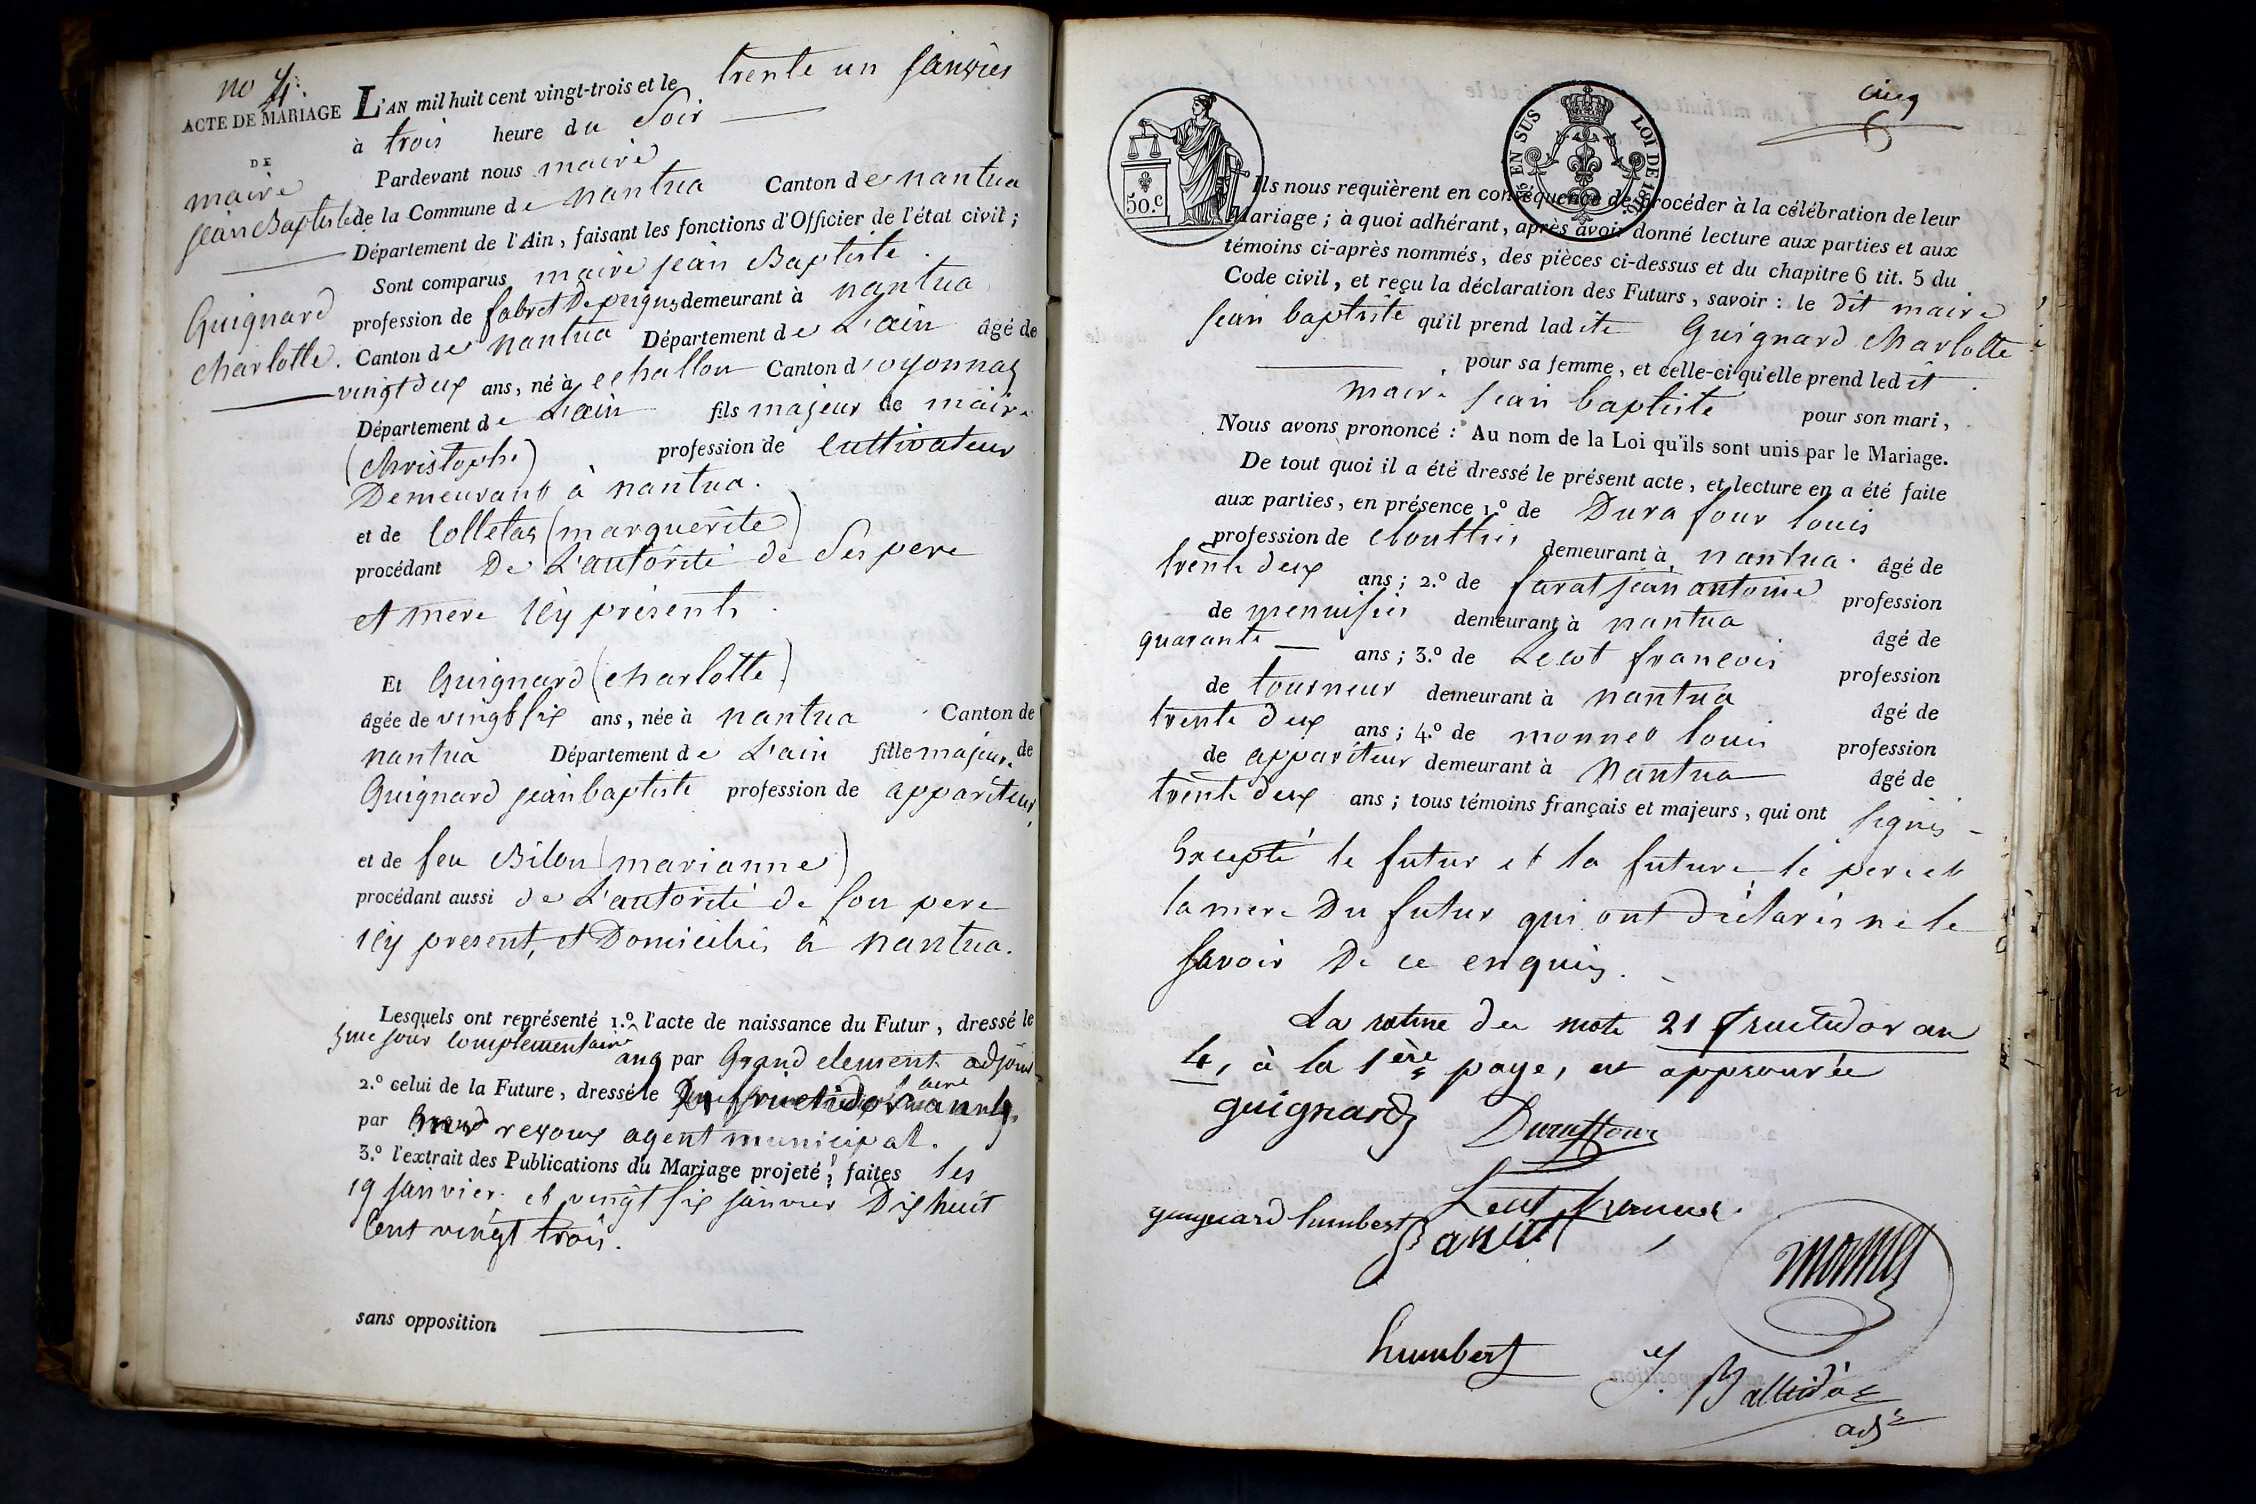 no 4.
ACTE DE MARIAGE
DE
maire
jean Baptiste
Guignard
charlotte.
L'AN mil huit cent vingt-trois et le trente un janvier
à trois heure du Soir
Pardevant nous maire
de la Commune de nantua Canton de nantua
Département de l'Ain, faisant les fonctions d'Officier de l'état civil;
Sont comparus maire jean Baptiste.
profession de fabrct De peignes demeurant à nantua
Canton de nantua Département de L'ain âgé de
vingt deux ans, né à echallon Canton d'oyonnas
Département de L'ain fils majeur de maire
(christophe) profession de Cultivateur
Demeurant à nantua.
et de Colletas (marguerite)
procédant De L'autorité de Ses pere
et mere Icy présents.
Et Guignard (charlotte)
âgée de vingt six ans, née à nantua Canton de
nantua Département de L'ain fille majeure de
Guignard jean baptiste profession de appariteur
et de feu Bilon (marianne)
procédant aussi de L'autorité de son pere
Icy present, et Domiciliés à nantua.
Lesquels ont représenté 1.º l'acte de naissance du Futur, dressé le
5me jour Complémentaire an 9 par Grand clement adjoint
2.º celui de la Future, dressé le fructidor an 4
par reyoux agent municipal.
3.º l'extrait des Publications du Mariage projeté, faites les
19 janvier et vingt six janvier Dix huit
Cent vingt trois.
sans opposition
50.c
EN SUS LOI DE 1816.
cinq
Ils nous requièrent en conséquence de procéder à la célébration de leur
Mariage; à quoi adhérant, après avoir donné lecture aux parties et aux
témoins ci-après nommés, des pièces ci-dessus et du chapitre 6 tit. 5 du
Code civil, et reçu la déclaration des Futurs, savoir: le dit maire
jean baptiste qu'il prend ladite Guignard charlotte
pour sa femme, et celle-ci qu'elle prend ledit
maire jean baptiste pour son mari,
Nous avons prononcé: Au nom de la Loi qu'ils sont unis par le Mariage.
De tout quoi il a été dressé le présent acte, et lecture en a été faite
aux parties, en présence 1.º de Dura four louis
profession de cloutier demeurant à nantua. âgé de
trente deux ans; 2.º de jarat jean antoine profession
de menuisier demeurant à nantua âgé de
quarante ans; 3.º de Lecot francois profession
de tourneur demeurant à nantua âgé de
trente deux ans; 4.º de monnet louis profession
de appariteur demeurant à Nantua âgé de
trente deux ans; tous témoins français et majeurs, qui ont signés
Excepté le futur et la future le pere et
la mere Du futur qui ont déclarés ne le
savoir De ce enquis.
La rature du mote 21 fructidor an
4, à la 1ère page, est approuvée
guignard
Duraffour
Lecot francois
guignard humbert
monnet
humbert
adj